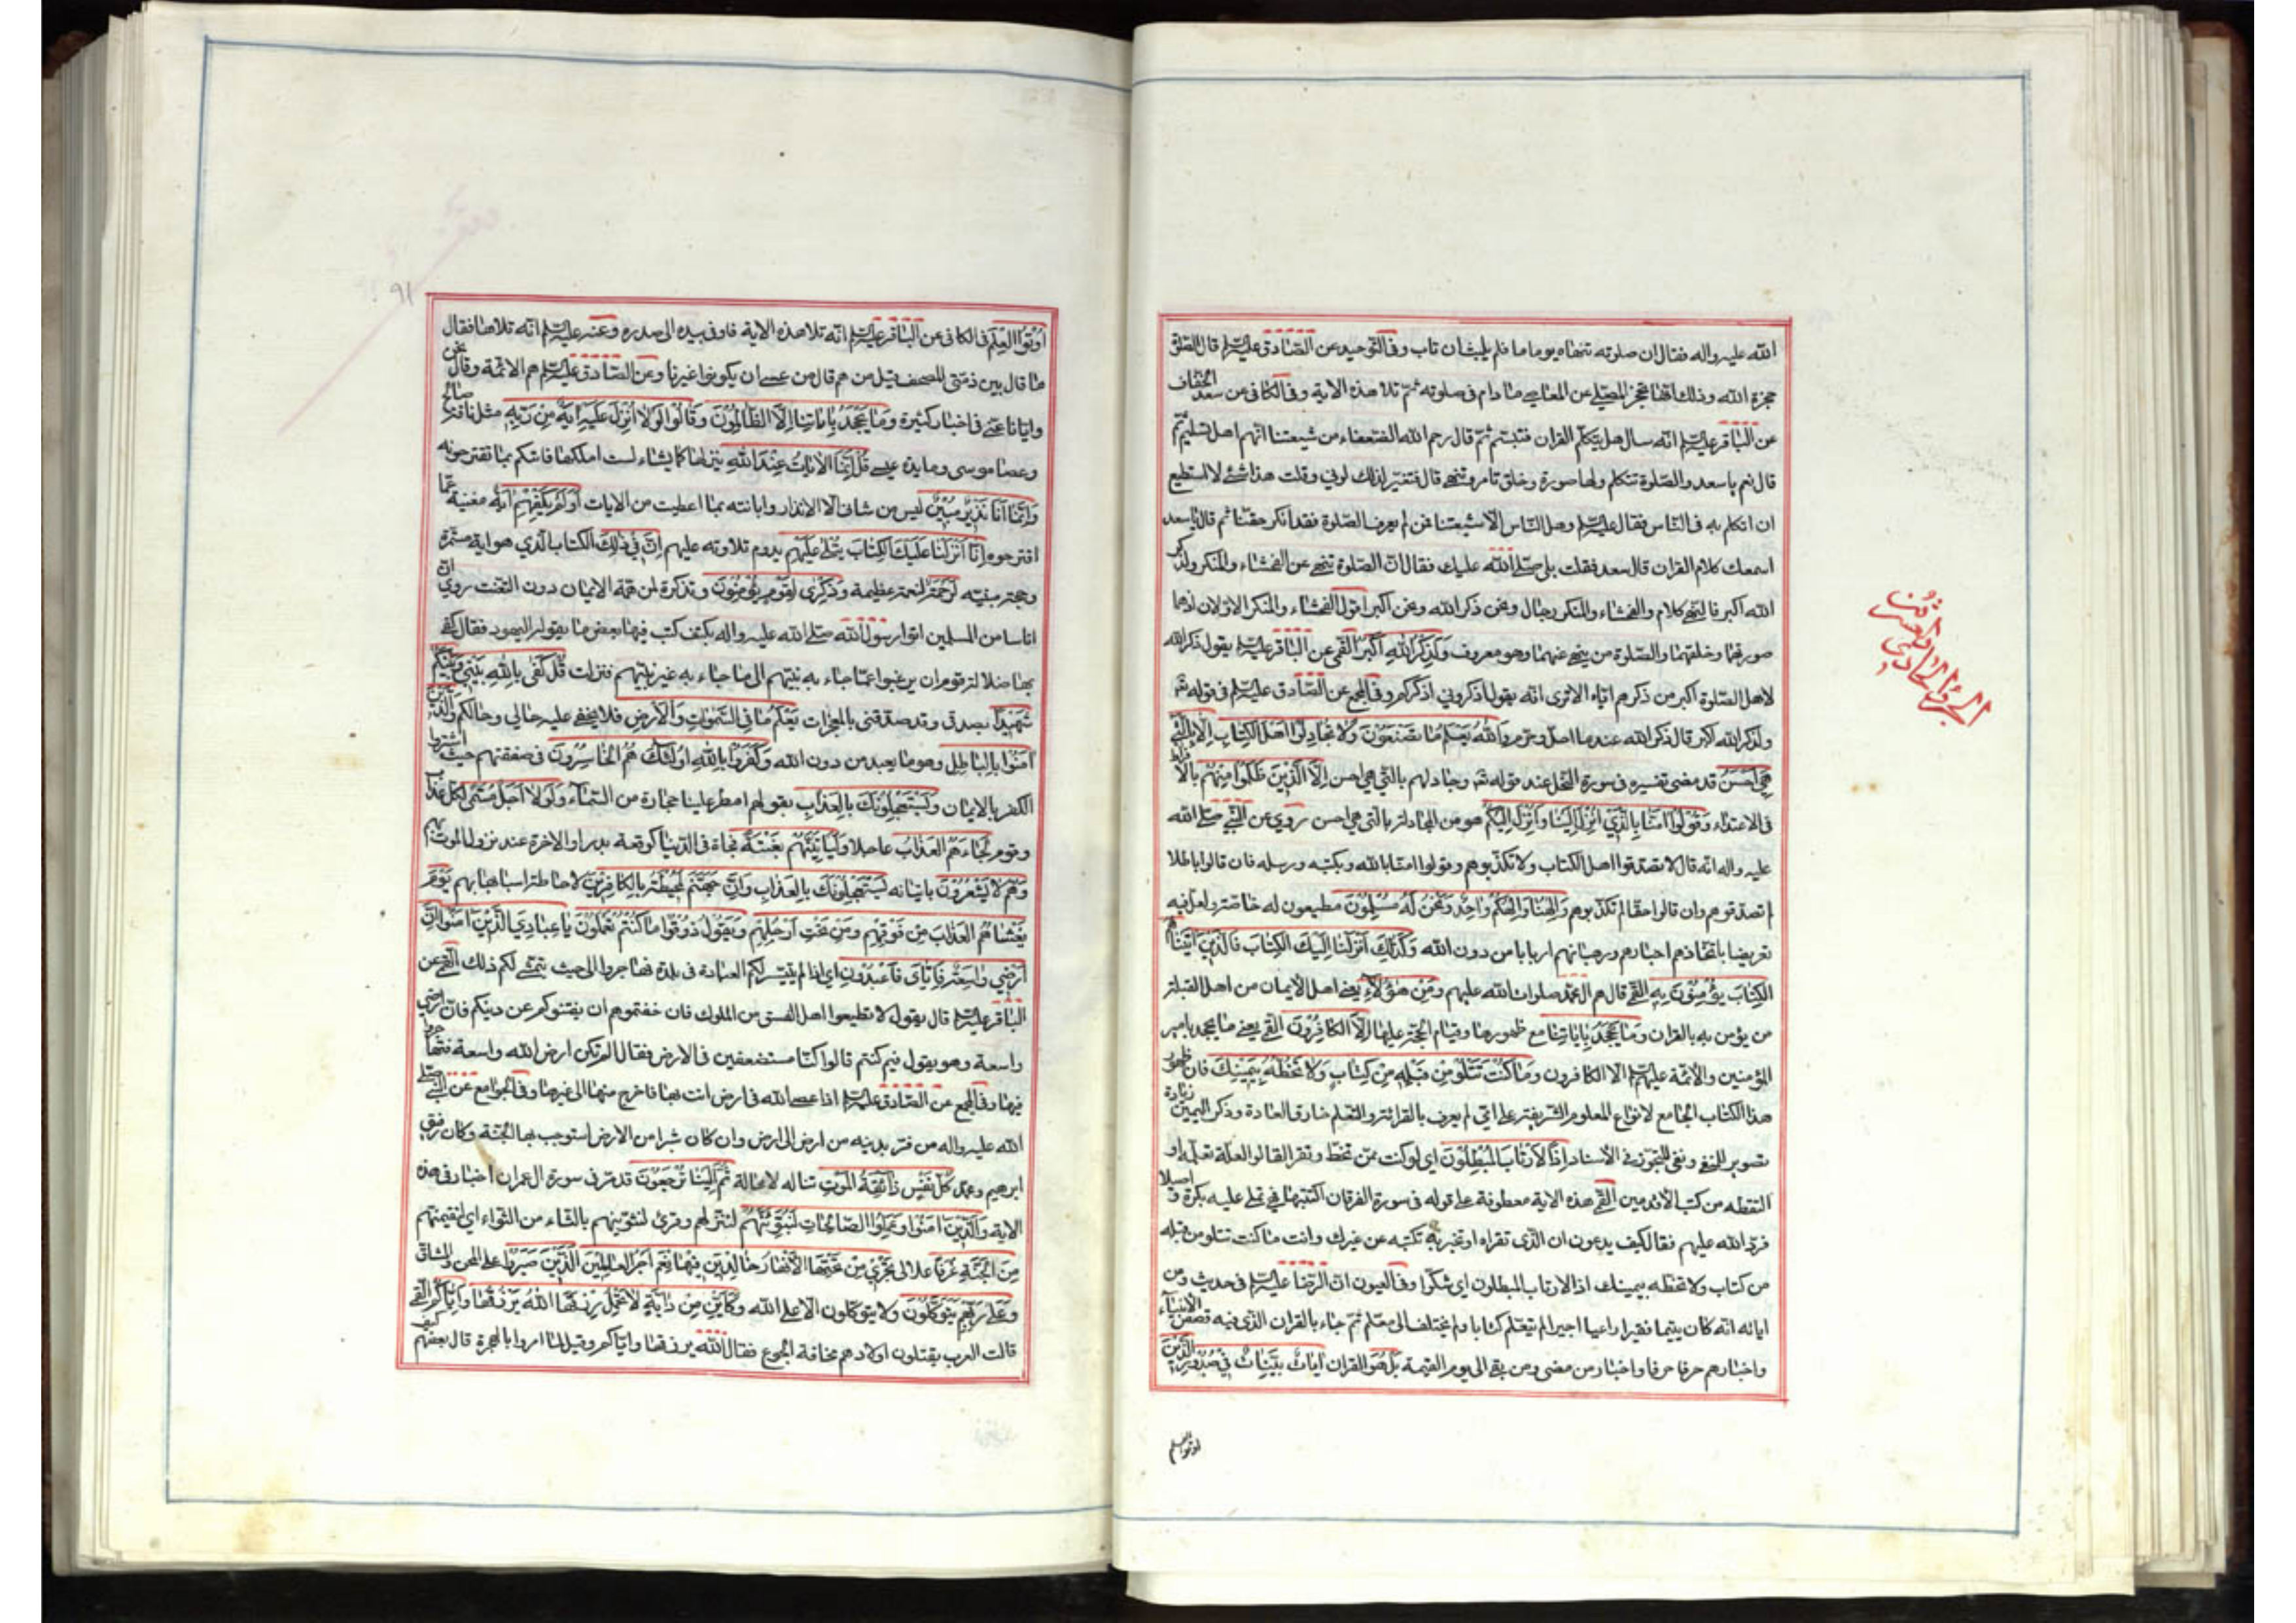 الله عليه واله فقال ان صلوته تنهاه يوما ما فلم يلبث ان تاب وفى التوحيد عن الصادق عليه السلم قال الصلوة
حجزة الله وذلك انها تحجز المصلى عن المعاصى ما دام فى صلوته ثم تلا هذه الاية وفى الكافى عن سعد الخفاف
عن الباقر عليه السلم انه سال هل يتكلم القران فتبسم ثم قال رحم الله الضعفاء من شيعتنا انهم اهل تسليم ثم
قال نعم يا سعد والصلوة تتكلم ولها صورة وخلق تامر وتنهى قال فتغير لذلك لونى وقلت هذا شئ لا استطيع
ان اتكلم به فى الناس فقال عليه السلم وهل الناس الا شيعتنا فمن لم يعرف الصلوة فقد انكر حقنا ثم قال يا سعد
اسمعك كلام القران قال سعد فقلت بلى صلى الله عليك فقال ان الصلوة تنهى عن الفحشاء والمنكر ولذكر
الله اكبر فالنهى كلام والفحشاء والمنكر رجال ونحن ذكر الله ونحن اكبر اقول الفحشاء والمنكر الاولان لانهما
صورتهما وخلقتهما والصلوة من ينهى عنهما وهو معروف وَلَذِكْرُ اللهِ أَكْبَرُ القمى عن الباقر عليه السلم يقول ذكر الله
لاهل الصلوة اكبر من ذكرهم اياه الا ترى انه يقول اذكرونى اذكركم وفى المجمع عن الصادق عليه السلم فى قوله تع
ولذكر الله اكبر قال ذكر الله عند ما احل وحرم وَاللهُ يَعْلَمُ مَا تَصْنَعُونَ وَلَا تُجَادِلُوا اَهْلَ الْكِتَابِ اِلَّا بِالَّتِي
هِيَ اَحْسَنُ قد مضى تفسيره فى سورة النحل عند قوله تع وجادلهم بالتى هى احسن اِلَّا الَّذِينَ ظَلَمُوا مِنْهُمْ بالافراط
فى الاعتداء وَقُولُوا آمَنَّا بِالَّذِي اُنْزِلَ اِلَيْنَا وَاُنْزِلَ اِلَيْكُمْ هو من المجادلة بالتى هى احسن روى عن النبى صلى الله
عليه واله انه قال لا تصدقوا اهل الكتاب ولا تكذبوهم وقولوا امنا بالله وبكتبه ورسله فان قالوا باطلا
لم تصدقوهم وان قالوا حقا لم تكذبوهم وَاِلٰهُنَا وَاِلٰهُكُمْ وَاحِدٌ وَنَحْنُ لَهُ مُسْلِمُونَ مطيعون له خاصة ولعل فيه
تعريضا باتخاذهم احبارهم ورهبانهم اربابا من دون الله وَكَذٰلِكَ اَنْزَلْنَا اِلَيْكَ الْكِتَابَ فَالَّذِينَ اٰتَيْنَاهُمُ
الْكِتَابَ يُؤْمِنُونَ بِهِ القمى قال هم ال محمد صلوات الله عليهم وَمِنْ هٰؤُلَاءِ يعنى اهل الايمان من اهل القبلة
من يؤمن به بالقران وَمَا يَجْحَدُ بِاٰيَاتِنَا مع ظهورها وقيام الحجة عليها اِلَّا الْكَافِرُونَ القمى يعنى ما يجحد بامير
المؤمنين والائمة عليهم السلم الا الكافرون وَمَا كُنْتَ تَتْلُو مِنْ قَبْلِهِ مِنْ كِتَابٍ وَلَا تَخُطُّهُ بِيَمِينِكَ فان ظهور
هذا الكتاب الجامع لانواع العلوم الشريفة على امى لم يعرف بالقرائة والتعلم خارق العادة وذكر اليمين زيادة
تصوير للنفى ونفى للتجوز فى الاسناد اِذًا لَارْتَابَ الْمُبْطِلُونَ اى لو كنت ممن تخط وتقرا لقالوا لعله تعلم او
التقطه من كتب الاقدمين القمى هذه الاية معطوفة على قوله فى سورة الفرقان اكتتبها فهى تملى عليه بكرة و اصيلا
فرد الله عليهم فقال كيف يدعون ان الذى تقراه او تخبر به تكتبه عن غيرك وانت ما كنت تتلو من قبله
من كتاب ولا تخطه بيمينك اذا لارتاب المبطلون اى شكوا وفى العيون ان الرضا عليه السلم فى حديث ومن
اياته انه كان يتيما فقيرا راعيا اجيرا لم يتعلم كتابا ولم يختلف الى معلم ثم جاء بالقران الذى فيه قصص الانبياء
واخبارهم حرفا حرفا واخبار من مضى ومن بقى الى يوم القيمة بَلْ هُوَ القران اٰيَاتٌ بَيِّنَاتٌ فِي صُدُورِ الَّذِينَ
اوتوا العلم
الجزء الحادي والعشرون
٩١
اُوتُوا الْعِلْمَ فى الكافى عن الباقر عليه السلم انه تلا هذه الاية فاوفى بيده الى صدره وعنه عليه السلم انه تلاها فقال
ما قال بين دفتى المصحف قيل من هم قال من عسى ان يكونوا غيرنا وعن الصادق عليه السلم هم الائمة وقال نحن
وايانا عنى فى اخبار كثيرة وَمَا يَجْحَدُ بِاٰيَاتِنَا اِلَّا الظَّالِمُونَ وَقَالُوا لَوْلَا اُنْزِلَ عَلَيْهِ اٰيَةٌ مِنْ رَبِّهِ مثل ناقة صالح
وعصا موسى ومايدة عيسى قُلْ اِنَّمَا الْاٰيَاتُ عِنْدَ اللهِ ينزلها كما يشاء لست املكها فاتيكم بما تقترحونه
وَاِنَّمَا اَنَا نَذِيرٌ مُبِينٌ ليس من شانى الا الانذار وابانته بما اعطيت من الايات اَوَلَمْ يَكْفِهِمْ اية مغنية عما
اقترحوه اَنَّا اَنْزَلْنَا عَلَيْكَ الْكِتَابَ يُتْلٰى عَلَيْهِمْ يدوم تلاوته عليهم اِنَّ فِي ذٰلِكَ الكتاب الذى هو اية مستمرة
وحجة مبنية لَرَحْمَةً لنعمة عظيمة وَذِكْرٰى لِقَوْمٍ يُؤْمِنُونَ وتذكرة لمن همه الايمان دون التعنت روى ان
اناسا من المسلمين اتوا رسول الله صلى الله عليه واله بكتف كتب فيها بعض ما يقوله اليهود فقال كفى
بها ضلالة قوم ان يرغبوا عما جاء به نبيهم الى ما جاء به غير نبيهم فنزلت قُلْ كَفٰى بِاللهِ بَيْنِي وَبَيْنَكُمْ
شَهِيدًا بصدقى وقد صدقنى بالمعجزات يَعْلَمُ مَا فِي السَّمٰوَاتِ وَالْاَرْضِ فلا يخفى عليه حالى وحالكم وَالَّذِينَ
اٰمَنُوا بِالْبَاطِلِ وهو ما يعبد من دون الله وَكَفَرُوا بِاللهِ اُولٰئِكَ هُمُ الْخَاسِرُونَ فى صفقتهم حيث اشتروا
الكفر بالايمان وَيَسْتَعْجِلُونَكَ بِالْعَذَابِ بقولهم امطر علينا حجارة من السماء وَلَوْلَا اَجَلٌ مُسَمًّى لكل عذاب
وقوم لَجَاءَهُمُ الْعَذَابُ عاجلا وَلَيَأْتِيَنَّهُمْ بَغْتَةً فجاة فى الدنيا كوقعة بدر او الاخرة عند نزول الموت بهم
وَهُمْ لَا يَشْعُرُونَ باتيانه يَسْتَعْجِلُونَكَ بِالْعَذَابِ وَاِنَّ جَهَنَّمَ لَمُحِيطَةٌ بِالْكَافِرِينَ لاحاطة اسبابها بهم يَوْمَ
يَغْشَاهُمُ الْعَذَابُ مِنْ فَوْقِهِمْ وَمِنْ تَحْتِ اَرْجُلِهِمْ وَيَقُولُ ذُوقُوا مَا كُنْتُمْ تَعْمَلُونَ يَا عِبَادِيَ الَّذِينَ اٰمَنُوا اِنَّ
اَرْضِي وَاسِعَةٌ فَاِيَّايَ فَاعْبُدُونِ اى اذا لم يتيسر لكم العبادة فى بلدة فهاجروا الى حيث يتمشى لكم ذلك القمى عن
الباقر عليه السلم قال يقول لا تطيعوا اهل الفسق من الملوك فان خفتموهم ان يفتنوكم عن دينكم فان ارضى
واسعة وهو يقول فيم كنتم قالوا كنا مستضعفين فى الارض فقال الم تكن ارض الله واسعة فتهاجروا
فيها وفى المجمع عن الصادق عليه السلم اذا عصى الله فى ارض انت بها فاخرج منها الى غيرها وفى الجوامع عن النبى صلى
الله عليه واله من فر بدينه من ارض الى ارض وان كان شبرا من الارض استوجب بها الجنة وكان رفيق
ابرهيم ومحمد كُلُّ نَفْسٍ ذَائِقَةُ الْمَوْتِ تناله لا محالة ثُمَّ اِلَيْنَا تُرْجَعُونَ قد مر فى سورة ال عمران اخبار فى هذه
الاية وَالَّذِينَ اٰمَنُوا وَعَمِلُوا الصَّالِحَاتِ لَنُبَوِّئَنَّهُمْ لننزلهم وقرئ لنثوينهم بالثاء من الثواء اى لنقيمنهم
مِنَ الْجَنَّةِ غُرَفًا علالى تَجْرِي مِنْ تَحْتِهَا الْاَنْهَارُ خَالِدِينَ فِيهَا نِعْمَ اَجْرُ الْعَامِلِينَ الَّذِينَ صَبَرُوا على المحن والمشاق
وَعَلٰى رَبِّهِمْ يَتَوَكَّلُونَ ولا يتوكلون الا على الله وَكَاَيِّنْ مِنْ دَابَّةٍ لَا تَحْمِلُ رِزْقَهَا اللهُ يَرْزُقُهَا وَاِيَّاكُمْ القمى
قالت العرب يقتلون اولادهم مخافة الجوع فقال الله يرزقها واياكم وقيل لما امروا بالهجرة قال بعضهم كيف